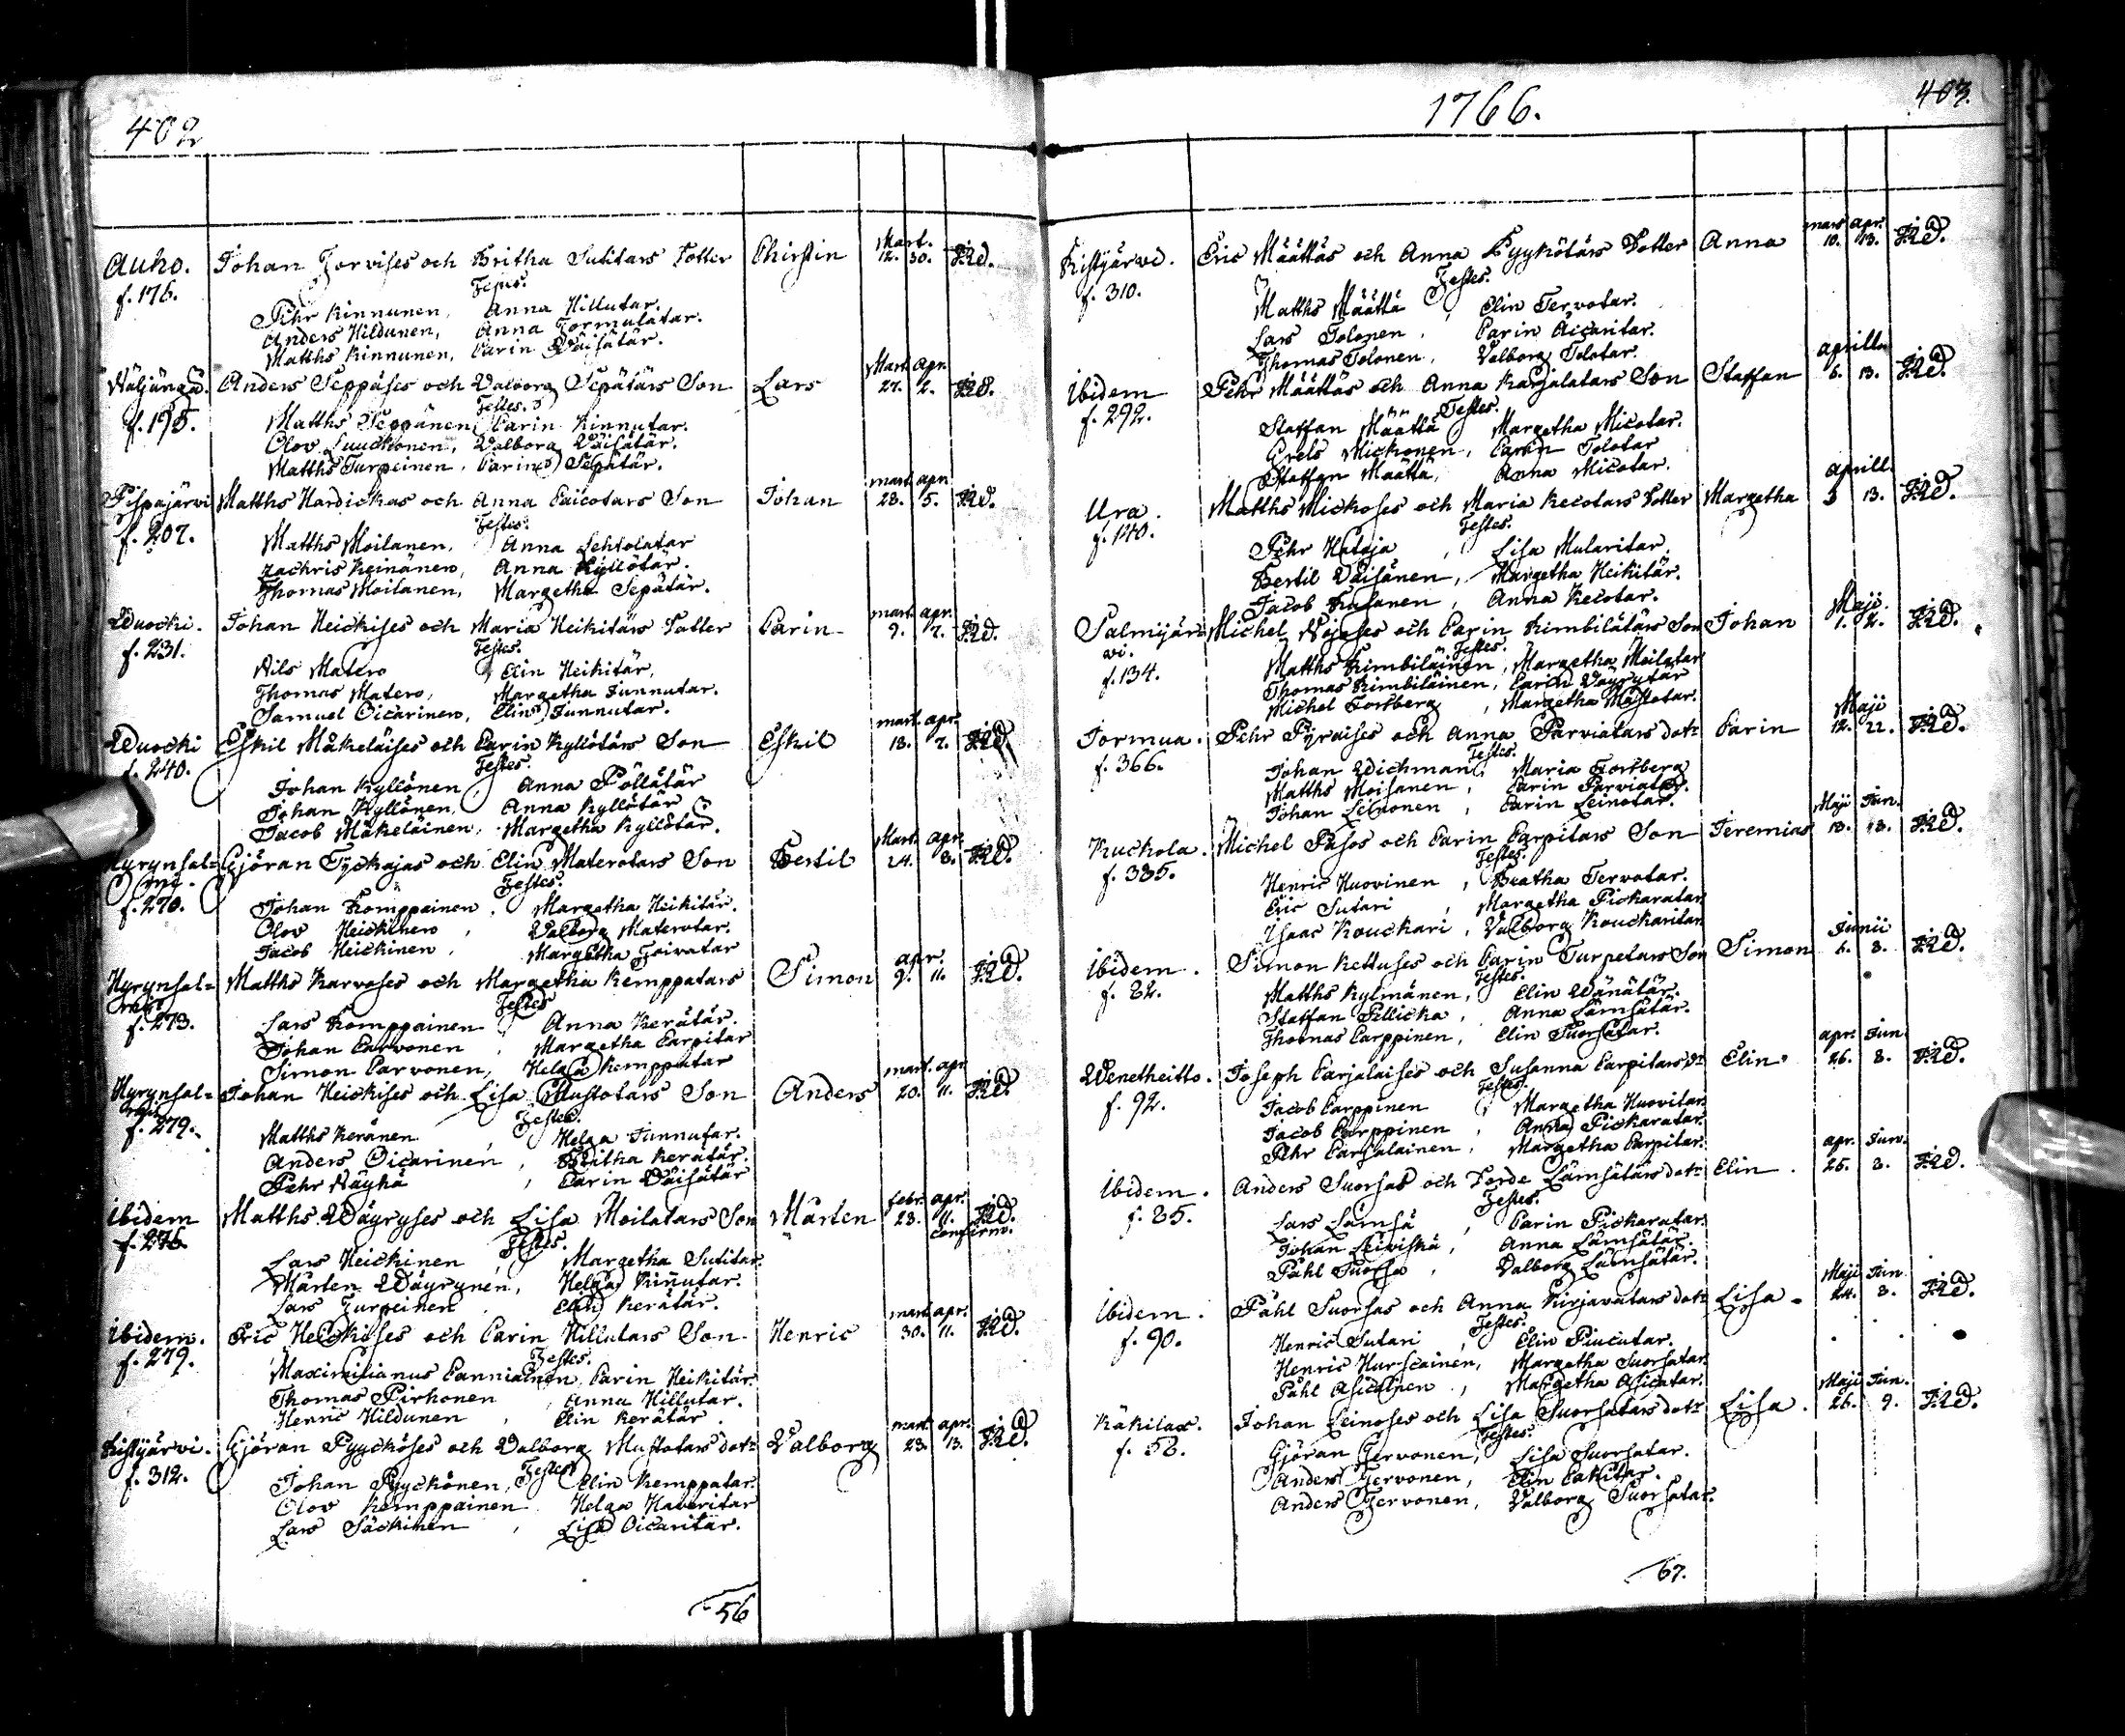 402
Auho. Johan Torvises och Britha Sutitars Dotter Chirstin Mart. 12. 30. FRd.
f. 176. Testes.
Pehr Kinnunen, Anna Hillutar.
Anders Hildunen, Anna Tormulatar.
Matths Kinnunen, Carin Väisätär.
Näljängä. Anders Seppäses och Valborg Sepätärs Son Lars Mart. 27. Apr. 2.
f. 195. Testes.
Matths Seppänen, Carin Kinnutar.
Olov Luuckonen, Valborg Väisätär.
Matths Turpeinen, Carin Sepätär.
Pispajärvi Matths Hardickas och Anna Caicotars Son Johan mart. 28. apr. 5.
f. 207. Testes.
Matths Moilanen, Anna Lehtolatar
Zachris Keinänen, Anna Kyllötär.
Thomas Moilanen, Margetha Sepätär.
Wuocki. Johan Heickises och Maria Heikitärs Dotter Carin mart. 9. apr. 7.
f. 231. Testes.
Nils Matero, Elin Heikitär,
Thomas Matero, Margetha Junnutar.
Samuel Oicarinen, Elin Junnutar.
Wuocki Eskil Mäkeläises och Carin Kyllötärs Son Eskil mart. 18. apr. 7.
f. 240. Testes.
Johan Kyllönen, Anna Pöllätär
Johan Kyllönen, Anna Kyllötär
Jacob Mäkeläinen, Margetha Kyllötär.
Hyrynsal= Gjöran Tyckäjas och Elin Materotars Son Bertil Mart. 24. apr. 8.
f. 270. Testes.
Johan Komppainen, Margetha Heikitär.
Olov Heickinen, Valborg Materotar.
Jacob Heickinen, Margetha Toivatar
Hyrynsal= Matths Karvoses och Margetha Kemppatars Simon apr. 9. 11.
f. 273. Testes
Lars Komppainen, Anna Kerätär.
Johan Carvonen, Margetha Carpitar
Simon Carvonen, Helga Kemppatar
Hyrynsal= Johan Heickises och Lisa Mustotars Son Anders mart. 20. apr. 11.
f. 279. Testes.
Matths Keränen, Helga Junnutar.
Anders Oicarinen, Britha Kerätär.
Pehr Näykä, Carin Väisätär
Ibidem Matths Wäyryses och Lisa Moilatars Son Mårten febr. 23. apr. 11.
f. 276. Testes. confirm.
Lars Heickinen, Margetha Sutitar.
Mårten Wäyrynen, Helga Kinnutar.
Lars Turpeinen, Elin Kerätär.
Ibidem. Eric Heickises och Carin Hillutars Son Henric mart. 30. apr. 11.
f. 279. Testes.
Maximilianus Canniainen, Carin Heikitär.
Thomas Pirhonen, Anna Hillutar.
Henric Hildunen, Elin Kerätär.
Ristijärvi. Gjöran Pyycköses och Valborg Mustotars dotr Valborg mart. 23. apr. 13.
f. 312. Testes
Johan Pyyckönen, Elin Kemppatar.
Olov Kemppainen, Helga Haveritar
Lars Säckinen, Lisa Oicaritar.
56
1766.
403.
Ristijärvi. Eric Määttäs och Anna Pyykötärs Dotter Anna mars 10. apr. 13.
f. 310. Testes.
Matths Määttä, Elin Tervotar.
Lars Tolonen, Carin Äicäritar.
Thomas Tolonen, Valborg Tolotar.
Ibidem Pehr Määttäs och Anna Karjalatars Son Staffan aprill. 6. 13.
f. 292. Testes.
Staffan Määttä, Margetha Micotar.
Grels Mickonen, Carin Tolotar
Staffan Määttä, Anna Micotar.
Ura. Matths Mickoses och Maria Kecotars Dotter Margetha aprill. 3 13.
f. 140. Testes.
Pehr Hataja, Lisa Mularitar.
Bertil Väisänen, Margetha Heikitär.
Jacob Kusanen, Anna Kecotar.
Salmijär= Michel Nojoses och Carin Kimbilätärs Son Johan Maji 1. 2.
vi.
f. 134. Testes.
Matths Kimbiläinen, Margetha Moilatar
Thomas Kimbiläinen, Carin Väyrytär
Michel Forsberg, Margetha Mustotar.
Jormua. Pehr Pyraises och Anna Parviatars dotr Carin Maji 12. 22.
f. 366. Testes.
Johan Wichman, Maria Forsberg
Matths Moisanen, Carin Parviatar.
Johan Leinonen, Carin Leinotar.
Kuckola. Michel Pasos och Carin Carpitars Son Jeremias Maji 13. Jun. 13.
f. 335. Testes.
Henric Huovinen, Beatha Tervotar.
Eric Sutari, Margetha Pickaratar
Isaac Kouckari, Valborg Kouckaritar
Ibidem. Simon Kettuses och Carin Turpetars Son Simon Junii 1. 8.
f. 82. Testes.
Matths Kylmänen, Elin Wänätär.
Staffan Pillicka, Anna Lämsätär.
Thomas Carppinen, Elin Suorsatar.
Wenetheitto. Joseph Carjalaises och Susanna Carpitars dr Elin apr. 26. Jun. 8.
f. 92. Testes.
Jacob Carppinen, Margetha Huovitar
Jacob Carppinen, Anna Pickaratar.
Pehr Carjalainen, Margetha Carpitar.
Ibidem. Anders Suorsas och Dorde Lämsätärs dotr Elin apr. 25. Jun. 8.
f. 85. Testes.
Lars Lämsä, Carin Pickaratar.
Johan Leiviskä, Anna Lämsätär.
Påhl Suorsa, Valborg Lämsätär.
Ibidem. Påhl Suorsas och Anna Kirjavatars dotr Lisa Maji 24. Jun. 8.
f. 90. Testes.
Henric Sutari, Elin Piucutar.
Henric Hurscainen, Margetha Suorsatar.
Påhl Asicainen, Margetha Asicatar.
Käkilax. Johan Leinoses och Lisa Suorsatars dotr Lisa. Maji 26. Jun. 9.
f. 58. Testes.
Gjöran Tervonen, Lisa Suorsatar.
Anders Tervonen, Elin Cakitar.
Anders Tervonen, Valborg Suorsatar.
67.